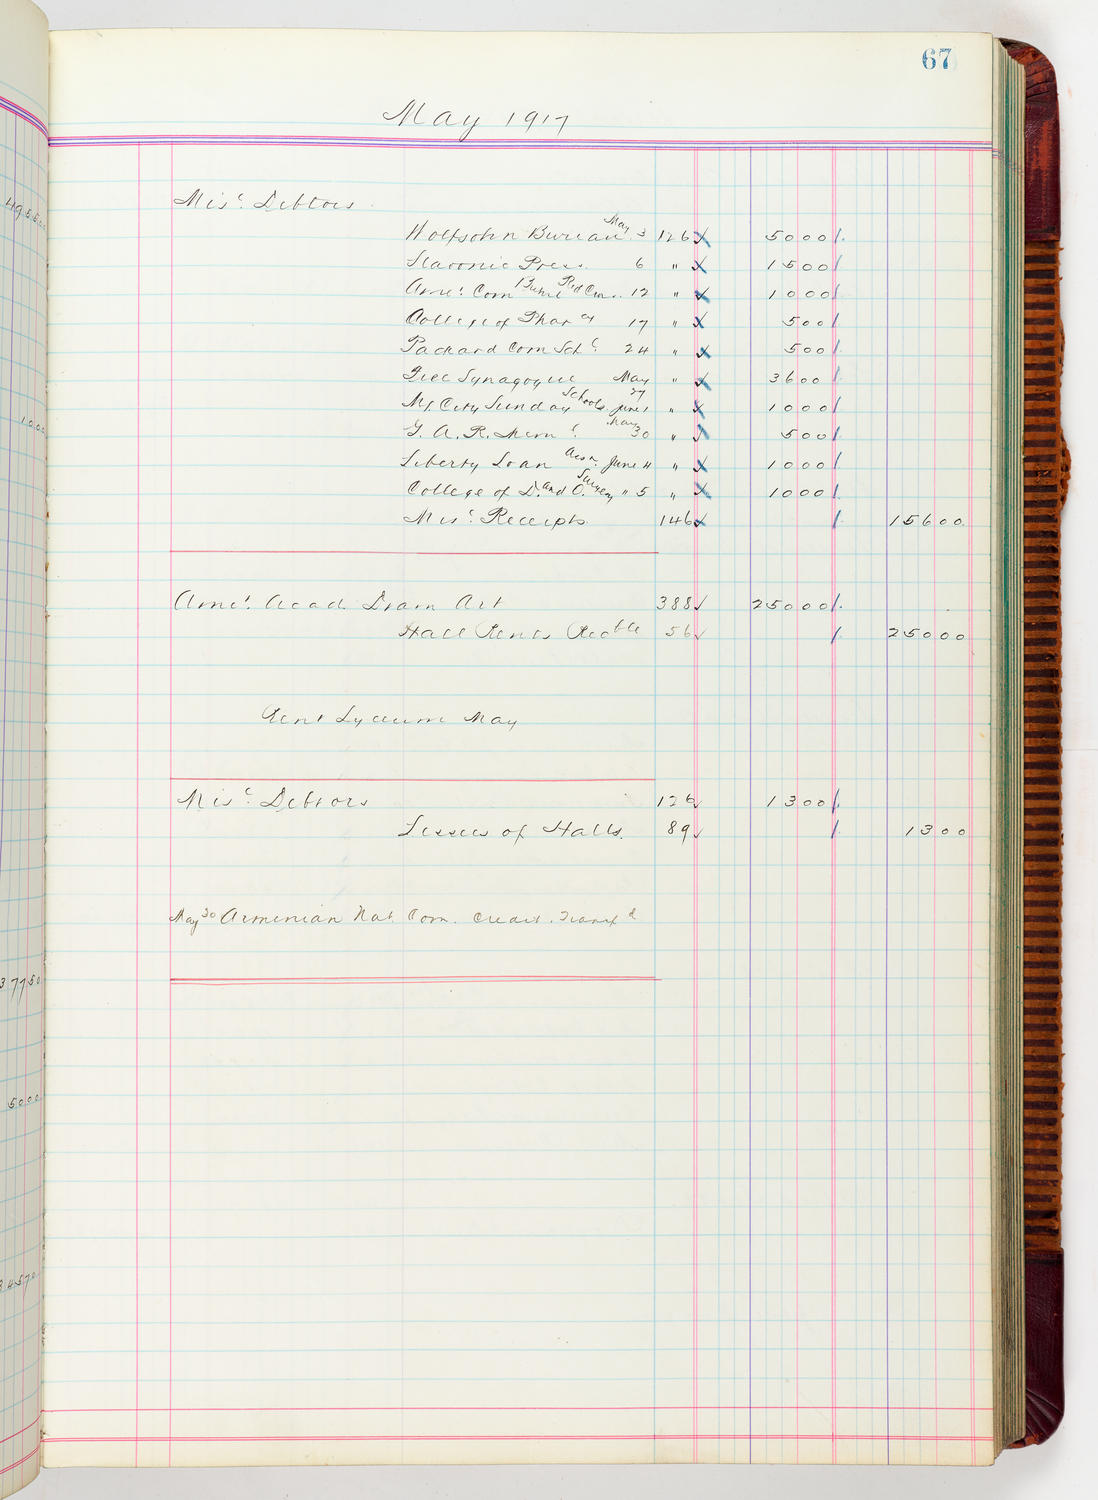 67
May 1917
Misc. Debtors
Wolfsohn Bureau May 3 126 5000
Slavonic Press 6 " 1500
Amer. Com Red Cross 12 " 1000
College of Pharcy 17 " 500
Packard Com Schl. 24 " 500
Free Synagogue May 27 " 3600
N.Y. City Sunday Schools June 1 " 1000
G. A. R. Meml. May 30 " 500
Liberty Loan Assn. June 4 " 1000
College of D. and O. Surgery " 5 " 1000
Misc. Receipts 146 15600
Amer. Acad. Dram Art 388 25000
Hall Rents Recble 56 25000
Rent Lyceum May
Misc. Debtors 126 1300
Lessees of Halls. 89 1300
May 30 Armenian Nat. Com. Credit. Transfd
49550
1000
37750
5000